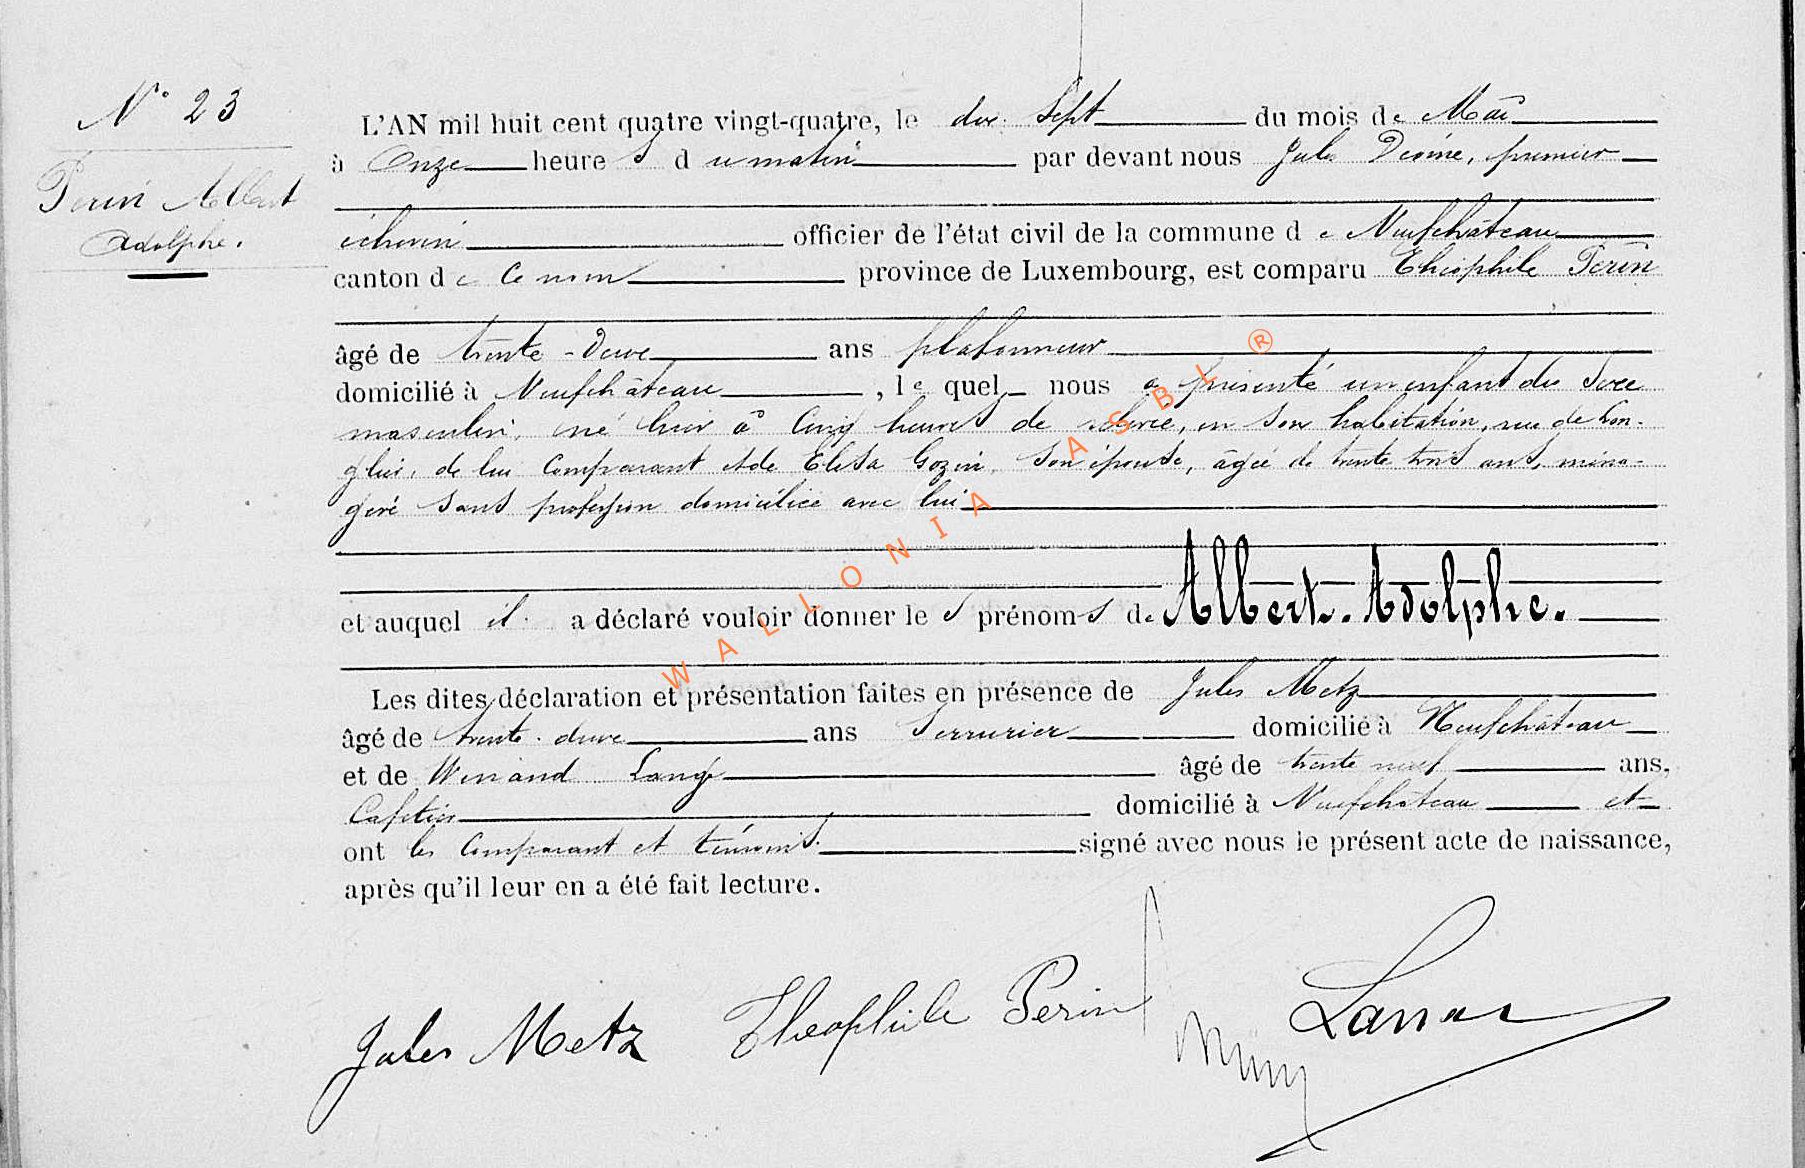 N° 23
Perin Albert
Adolphe.
L'AN mil huit cent quatre vingt-quatre, le dix Sept du mois de Mai
à Onze heure s d u matin par devant nous Jules premier
échevin officier de l'état civil de la commune d e Neufchâteau
canton d e Ce nom province de Luxembourg, est comparu Théophile Perin
âgé de trente-Deux ans plafonneur
domicilié à Neufchâteau , le quel nous a présenté un enfant du Sexe
masculin, né hier à Cinq heures de relevée, en son habitation, rue de Lon-
glier, de lui Comparant et de Elisa Gozin, Son épouse, âgée de trente trois ans, mena-
gère sans profession domiciliée avec lui
et auquel il a déclaré vouloir donner le s prénom s de Albert-Adolphe.
Les dites déclaration et présentation faites en présence de Jules Metz
âgé de trente-deux ans Serrurier domicilié à Neufchâteau
et de Winand âgé de trente neuf ans,
Cafetier domicilié à Neufchâteau et
ont les Comparant et témoins signé avec nous le présent acte de naissance,
après qu'il leur en a été fait lecture.
Jules Metz Theophile Perin
WALLONIA ASBL ®